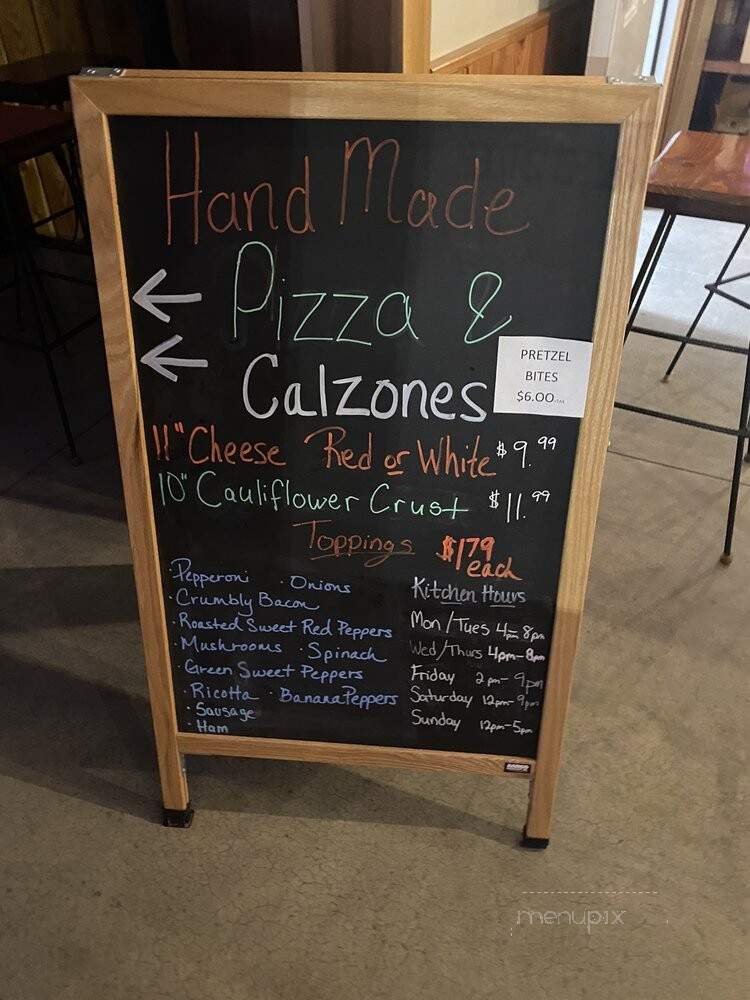 Hand Made
Pizza &
Calzones
PRETZEL
BITES
$6.00
11" Cheese Red or White $9.99
10" Cauliflower Crust $11.99
Toppings $1.79
each
· Pepperoni · Onions
· Crumbly Bacon
· Roasted Sweet Red Peppers
· Mushrooms · Spinach
· Green Sweet Peppers
· Ricotta · Banana Peppers
· Sausage
· Ham
Kitchen Hours
Mon/Tues 4pm-8pm
Wed/Thurs 4pm-8pm
Friday 2pm-9pm
Saturday 12pm-9pm
Sunday 12pm-5pm
menupix